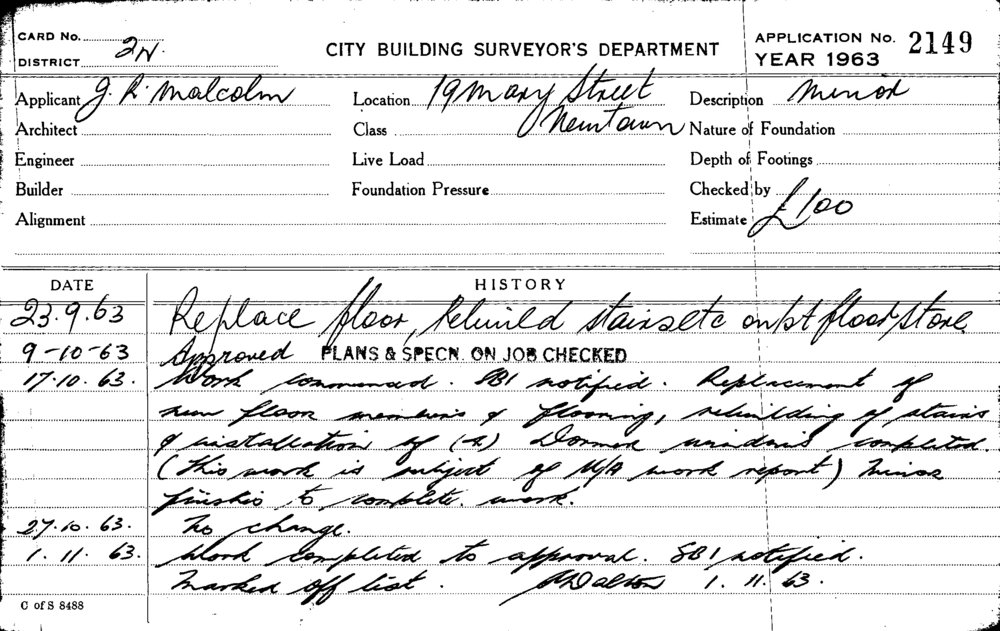 CARD No.
DISTRICT 2N.
CITY BUILDING SURVEYOR'S DEPARTMENT
APPLICATION No. 2149
YEAR 1963
Applicant J. R. Malcolm
Location 19 Mary Street
Newtown
Description Minor
Architect
Class
Nature of Foundation
Engineer
Live Load
Depth of Footings
Builder
Foundation Pressure
Checked by
Alignment
Estimate £100
DATE HISTORY
23.9.63 Replace floor, Rebuild stairs etc on 1st floor / Store
9-10-63 Approved PLANS & SPECN. ON JOB CHECKED
17.10.63. Work commenced. SBI notified. Replacement of
new floor members & flooring, rebuilding of stairs
& installation of (4) Dormer windows completed.
(This work is subject of U/A work report) Minor
finishes to complete work.
27.10.63. No change.
1.11.63. Work completed to approval. SBI notified.
Marked off list. Dalton 1.11.63.
C of S 8488